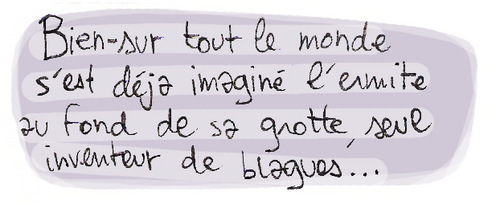 Bien-sur tout le monde
s'est déja imaginé l'ermite
au fond de sa grotte, seul
inventeur de blagues...